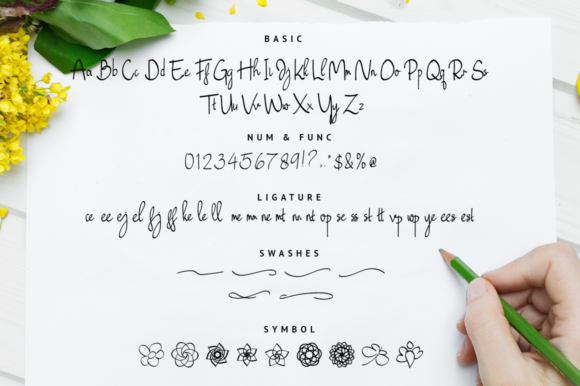 BASIC
Aa Bb Cc Dd Ee Ff Gg Hh Ii Jj Kk Ll Mm Nn Oo Pp Qq Rr Ss
Tt Uu Vv Ww Xx Yy Zz
NUM & FUNC
0123456789!?.,:"$&%@
LIGATURE
ce ee ej el fj ff ke le ll me mm ne mt nn nt op se ss st tt vp wp ye ees est
SWASHES
SYMBOL